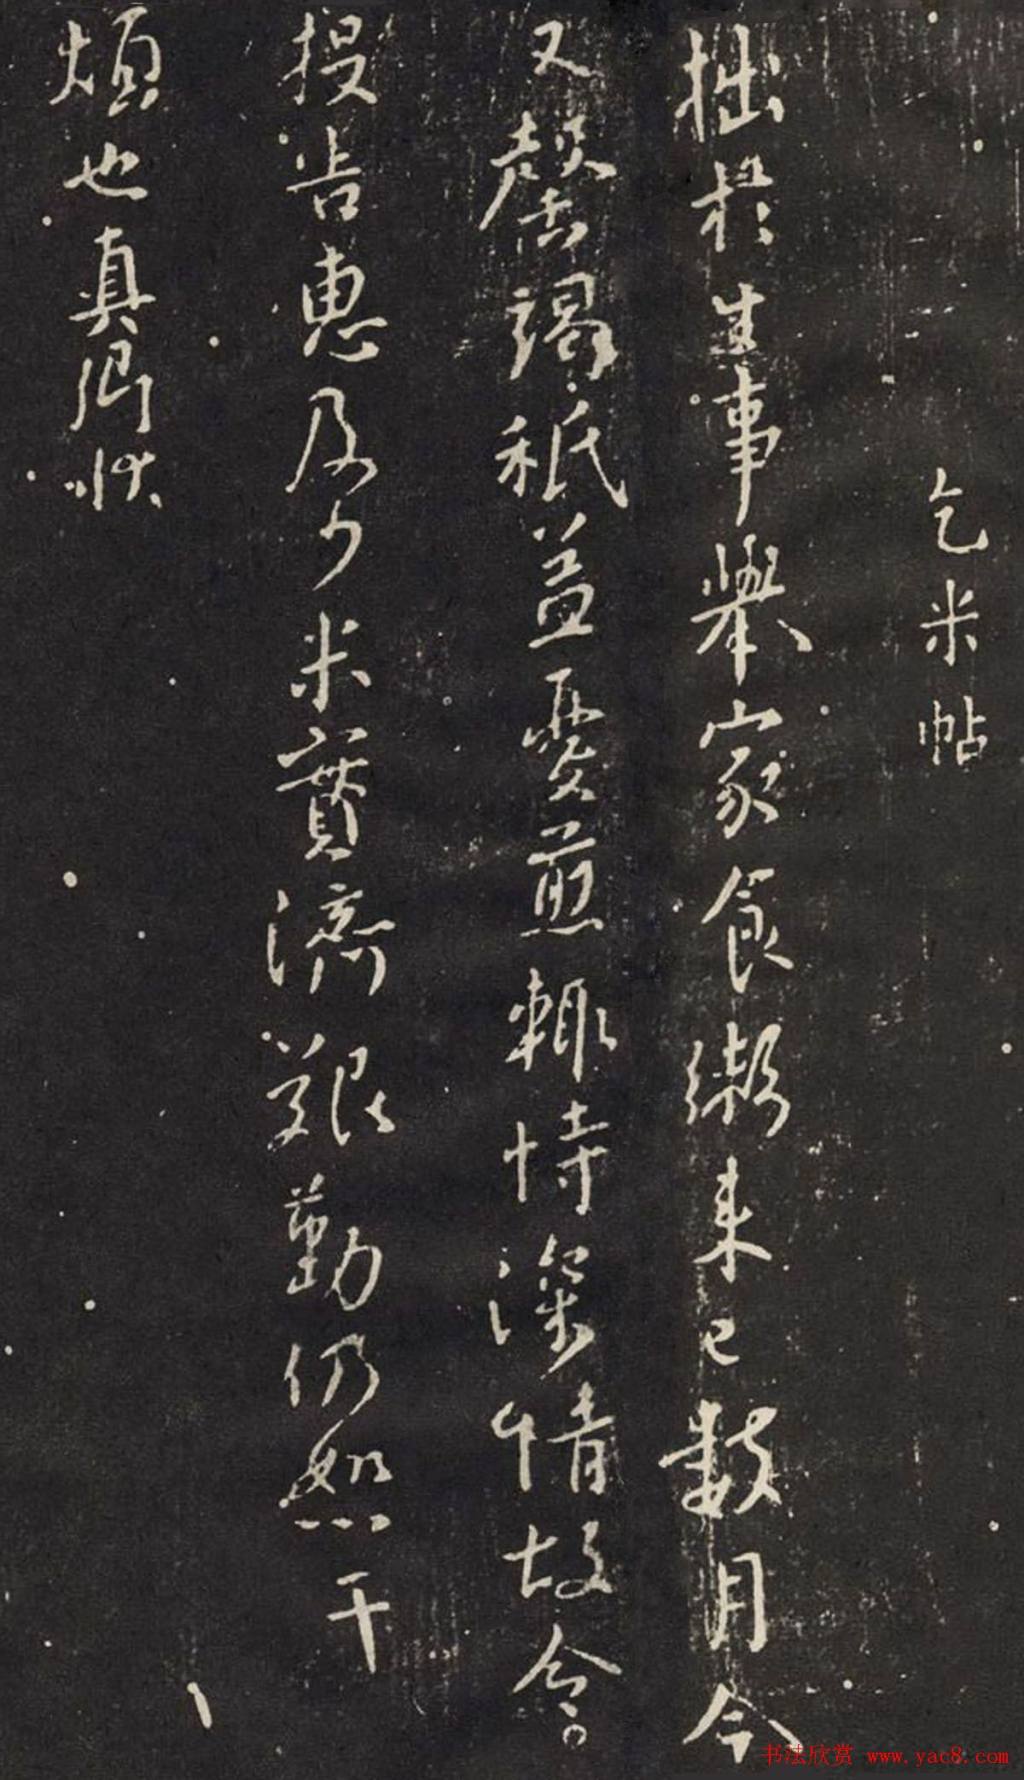 乞米帖
拙於生事舉家食粥来已数月今
又罄竭祗益憂煎輒恃深情故令
投告惠及少米實濟艱勤仍恕干
煩也真卿狀
书法欣赏 www.yac8.com